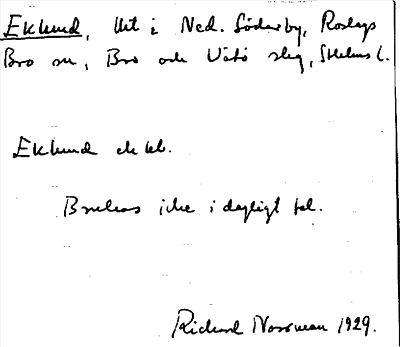 Eklund, Ht i Ned. Söderby, Roslags
Bro sn, Bro och Vätö slg, Sthlms l.
Eklund
Brukas icke i dagligt tal.
Richard Norrman 1929.